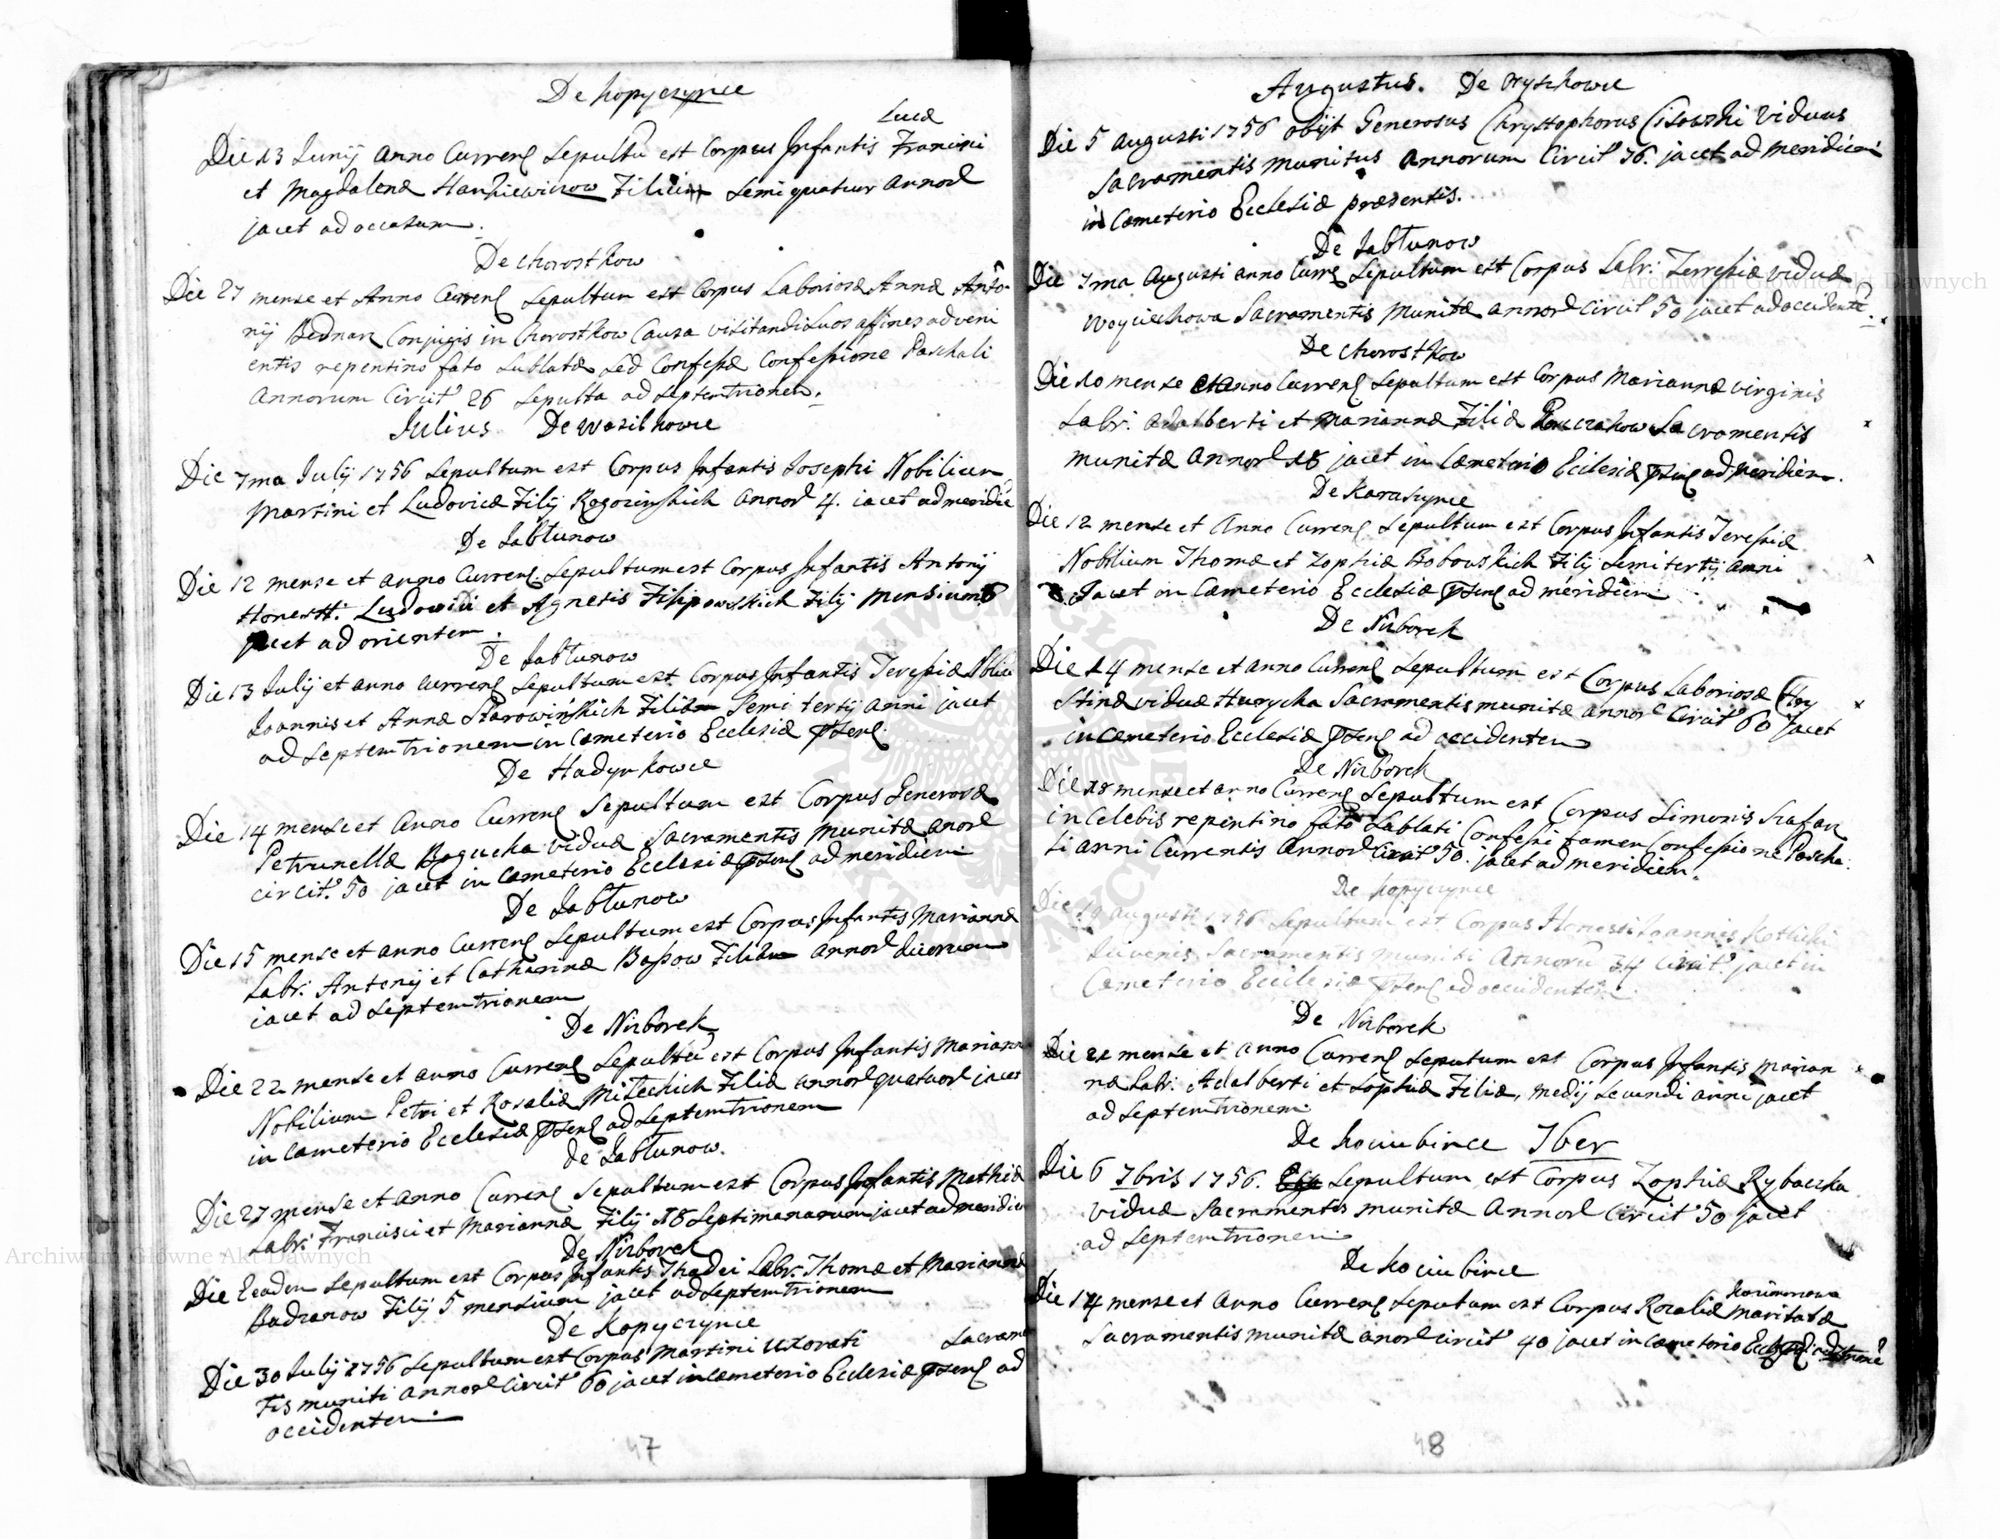 De Kopyczynce
Lucæ
Die 13 Junij Anno Curren Sepultũ est Corpus Infantis Francini
et Magdalenæ Hankiewiczow Filii Semi quatuor annor
jacet ad occasum.
De Chorostkow
Die 27 mense et Anno Curren Sepultum est Corpus Laboriosæ Annæ Anto-
nij Bednarz Conjugis in Chorostkow Causa visitandi Suos affines adveni
entis repentino fato Sublatæ sed Confessæ Confessione Paschali
Annorum Circit 26 Sepulta ad Septemtrionem.
Julius De Wasilkowce
Die 7ma July 1756 Sepultum est Corpus Infantis Josephi Nobilium
Martini et Ludovicæ Filij Rogozinskich Annor 4. jacet ad meridiẽ
De Jabłunow
Die 12 mense et anno Curren Sepultum est Corpus Infantis Antonij
Honestt: Ludovici et Agnetis Filipowskich Filij Mensium 8
jacet ad orientem.
De Jabłunow
Die 13 July et anno curren Sepultum est Corpus Infantis Teressiæ Nbliũ
Joannis et Annæ Starowińskich Filiæ Semi tertij anni jacet
ad Septemtrionem in Cæmeterio Ecclesiæ psen
De Hadynkowce
Die 14 mense et Anno Curren Sepultum est Corpus Generosæ
Petrunellæ Bogucka viduæ Sacramentis munitæ anor
circit. 50 jacet in Cæmeterio Ecclesiæ psen ad meridiem
De Jabłunow
Die 15 mense et anno Curren Sepultum est Corpus Infantis Mariannæ
Labr: Antonij et Catharinæ Bassow Filiæ annor duorum
jacet ad Septemtrionem
De Nirborek
Die 22 mense et anno Curren Sepultũ est Corpus Infantis Mariannæ
Nobilium Petri et Rosaliæ Miteckich Filiæ annor quatuor jacet
in Cæmeterio Ecclesiæ psen ad Septemtrionem
De Jabłunow.
Die 27 mense et anno Curren Sepultum est Corpus Infantis Mathiæ
Labr: Francisci et Mariannæ Filij 18 Septimanarum jacet ad meridiem
De Nirborek
Die Eadem Sepultum est Corpus Infantis Thadei Labr: Thomæ et Mariannæ
Badzanow Filij 5 mensium jacet ad Septemtrionem
De Kopyczynce
Die 30 July 1756 Sepultum est Corpus Martini uxorati Sacrame
tis muniti annor Circit 60 jacet in Cæmeterio Ecclesiæ psen ad
occidentem.
47
Augustus. De Oryszkowce
Die 5 Augusti 1756 obijt Generosus Chrystophorus Cisowski viduus
Sacramentis munitus Annorum Circit 76. jacet ad meridiem
in Cæmeterio Ecclesiæ præsentis.
De Jabłunow
Die 7ma Augusti anno Curre Sepultum est Corpus Labr: Terresiæ viduæ
Woyciechowa Sacramentis munitæ annor Circit 50 jacet ad occidentẽ.
De Chorostkow
Die 10 mense et anno Curren Sepultum est Corpus Mariannæ virginis
Labr: Adalberti et Mariannæ Filiæ Sacramentis
munitæ annor 18 jacet in Cæmeterio Ecclesiæ psen ad meridiem.
De Karaszynce
Die 12 mense et Anno Curren Sepultum est Corpus Infantis Teressiæ
Nobilium Thomæ et Zophiæ Bobowskich Filij Semi tertij anni
Jacet in Cæmeterio Ecclesiæ psen ad meridiem
De Nirborek
Die 14 mense et anno Curren Sepultum est Corpus Laboriosæ Chry
stinæ viduæ Hurycha Sacramentis munitæ annor Circit 60 jacet
in Cæmeterio Ecclesiæ psen ad occidentem
De Nirborek
Die 18 mense et anno Curren Sepultum est Corpus Simonis
in Celebis repentino fato Sablati Confessi tamen Confessione Pascha
li anni Currentis annor Circit 50. jacet ad meridiem.
De Kopyczynce
Die 19 Augusti 1756 Sepultum est Corpus Honesti Joannis
Juvenis Sacramentis muniti Annorũ 34 Circit jacet in
Cæmeterio Ecclesiæ psen ad occidentem.
De Nirborek
Die 21 mense et anno Curren Seputum est Corpus Infantis Marian
næ Labr: Adalberti et Zophiæ Filiæ, medij Secundi anni jacet
ad Septemtrionem
De Kociubince 7ber
Die 6 7bris 1756. Sepultum est Corpus Zophiæ Rybaczka
viduæ Sacramentis munitæ Annor Circit 50 jacet
ad Septemtrionem
De Kociubince
Die 14 mense et Anno Curren Seputum est Corpus Rozaliæ maritatæ
Sacramentis munitæ anor Circit 40 jacet in Cæmeterio
48
Archiwum Główne Akt Dawnych
Archiwum Główne Akt Dawnych
ARCHIWUM GŁÓWNE AKT DAWNYCH